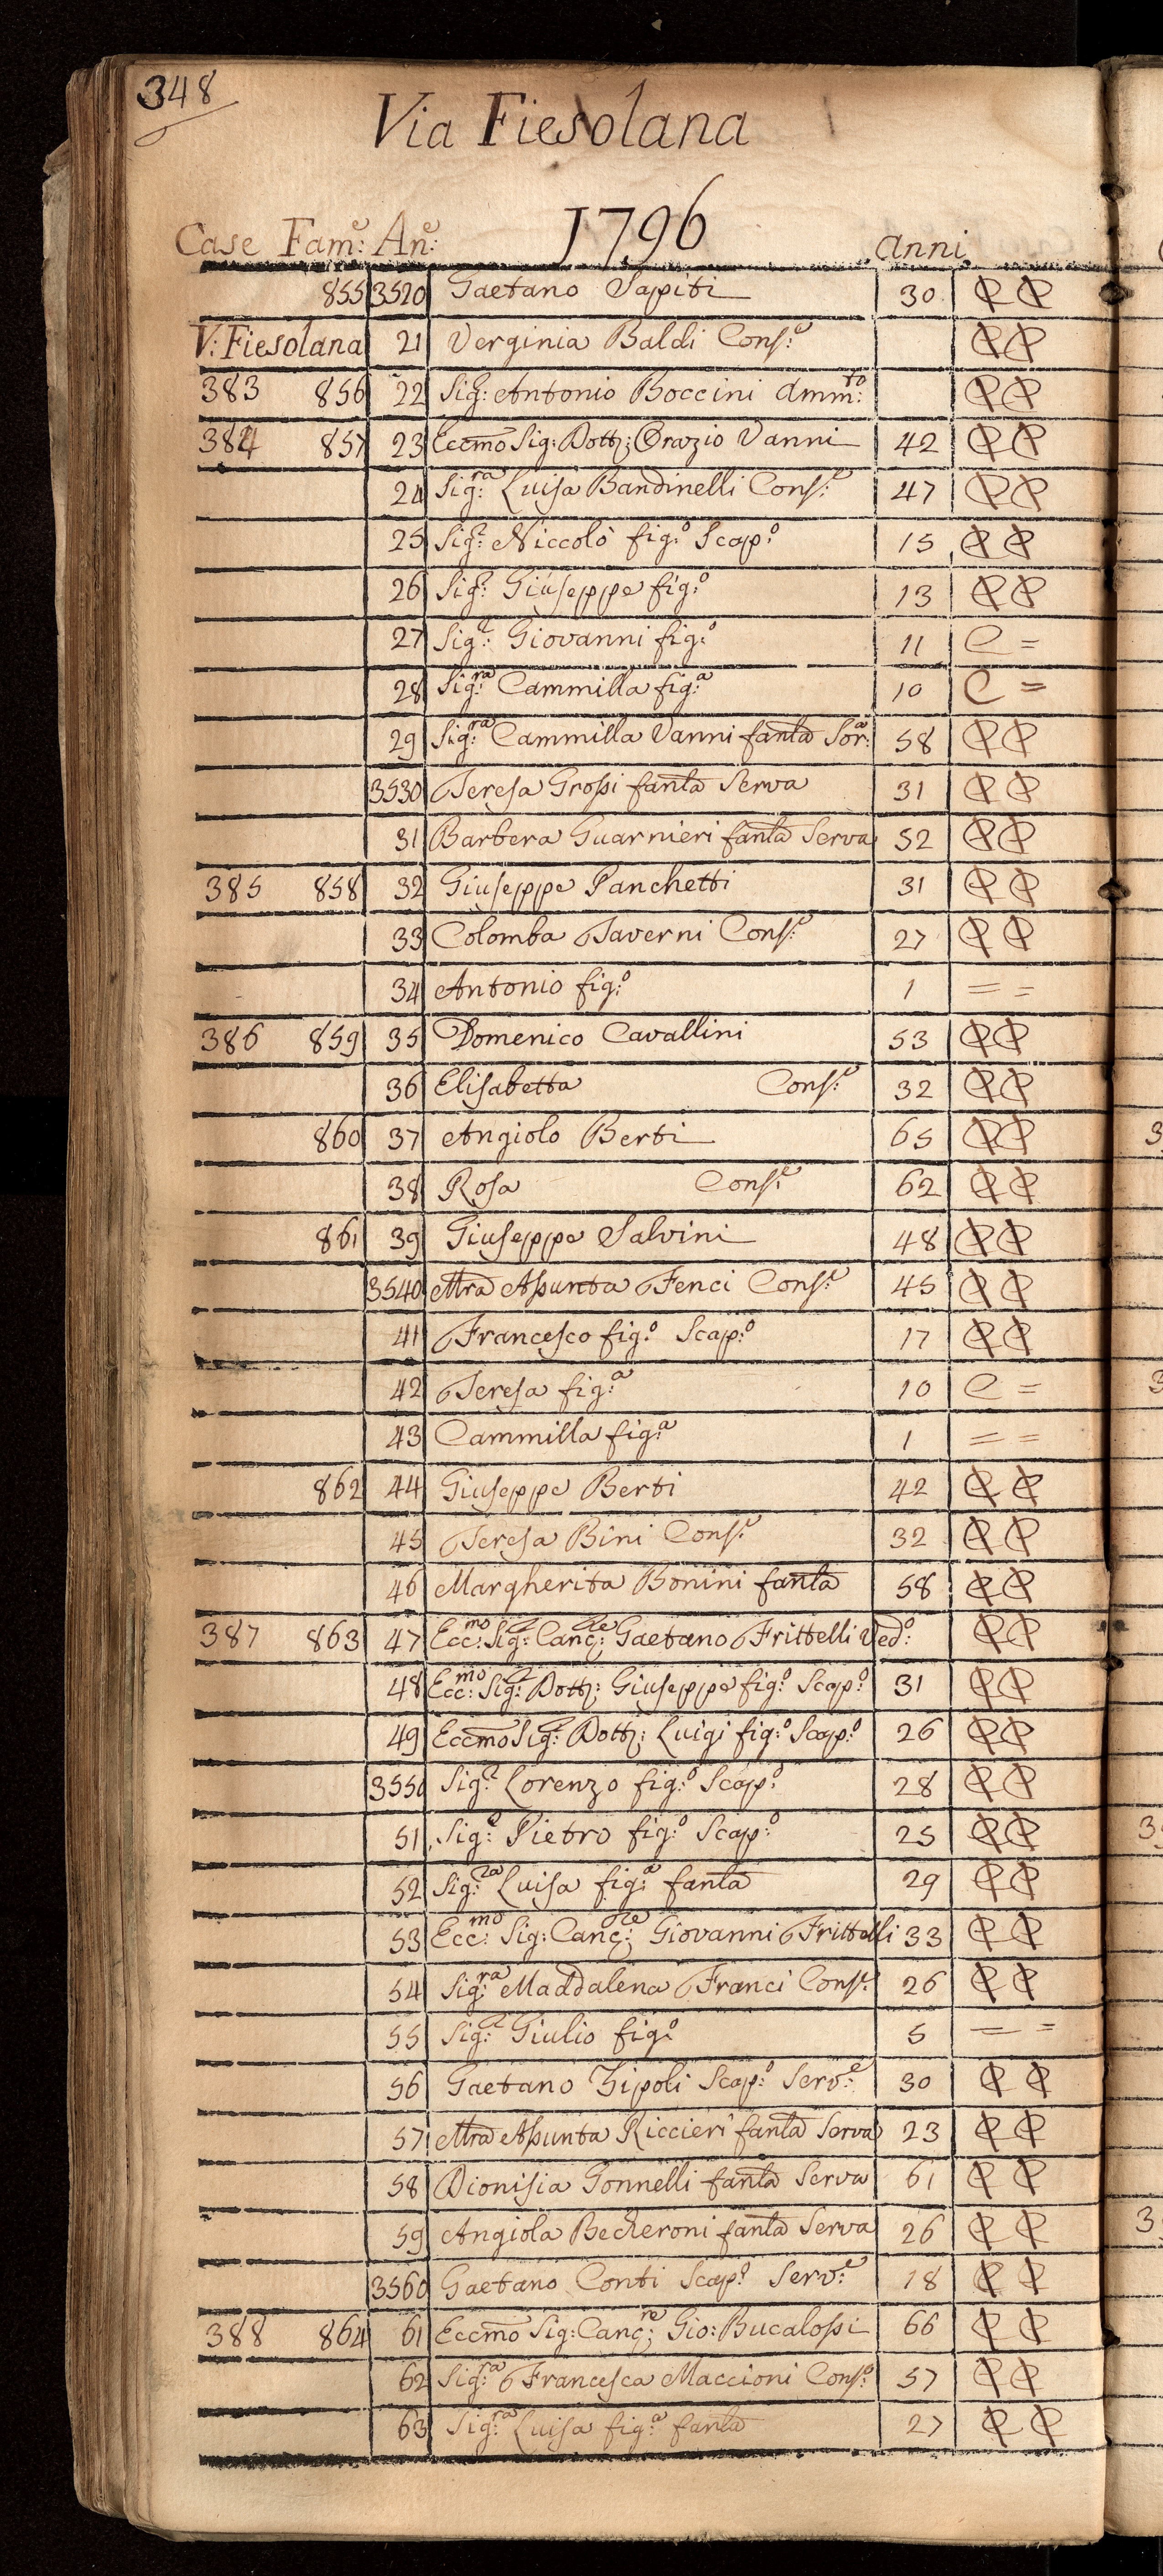 348
Via Fiesolana
1796
Case Fam:e An:e anni
855 3520 Gaetano Sapiti 30
V: Fiesolana 21 Verginia Baldi Cons:e
383 856 22 Sig: Antonio Boccini Amm:to
384 857 23 Eccmo Sig: Dott: Orazio Vanni 42
24 Sig:ra Luisa Bandinelli Cons:e 47
25 Sig:r Niccolò fig:o Scap:o 15
26 Sig:r Giuseppe fig:o 13
27 Sig:r Giovanni fig:o 11 C =
28 Sig:ra Cammilla fig:a 10 C =
29 Sig:ra Cammilla Vanni fanla Sor:a 58
3530 Teresa Grossi fanla Serva 31
31 Barbera Guarnieri fanla Serva 52
385 858 32 Giuseppe Panchetti 31
33 Colomba Taverni Cons:e 27
34 Antonio fig:o 1 = =
386 859 35 Domenico Cavallini 53
36 Elisabetta Cons:e 32
860 37 Angiolo Berti 65
38 Rosa Cons:e 62
861 39 Giuseppe Salvini 48
3540 Mra Assunta Fenci Cons:e 45
41 Francesco fig:o Scap:o 17
42 Teresa fig:a 10 C =
43 Cammilla fig:a 1 = =
862 44 Giuseppe Berti 42
45 Teresa Bini Cons:e 32
46 Margherita Bonini fanla 58
387 863 47 Ecc:mo Sig:r Canc:re Gaetano Frittelli Ved:o
48 Ecc:mo Sig:r Dott: Giuseppe fig:o Scap:o 31
49 Eccmo Sig:r Dott: Luigi fig:o Scap:o 26
3550 Sig:r Lorenzo fig:o Scap:o 28
51 Sig:r Pietro fig:o Scap:o 25
52 Sig:ra Luisa fig:a fanla 29
53 Ecc:mo Sig: Canc:re Giovanni Frittelli 33
54 Sig:ra Maddalena Franci Cons:e 26
55 Sig:r Giulio fig:o 5 = =
56 Gaetano Zipoli Scap:o Serv:e 30
57 Mra Assunta Riccieri fanla Serva 23
58 Dionisia Gonnelli fanla Serva 61
59 Angiola Becheroni fanla Serva 26
3560 Gaetano Conti Scap:o Serv:e 18
388 864 61 Eccmo Sig: Canc:re Gio: Bucalossi 66
62 Sig:ra Francesca Maccioni Cons:e 57
63 Sig:ra Luisa fig:a fanla 27